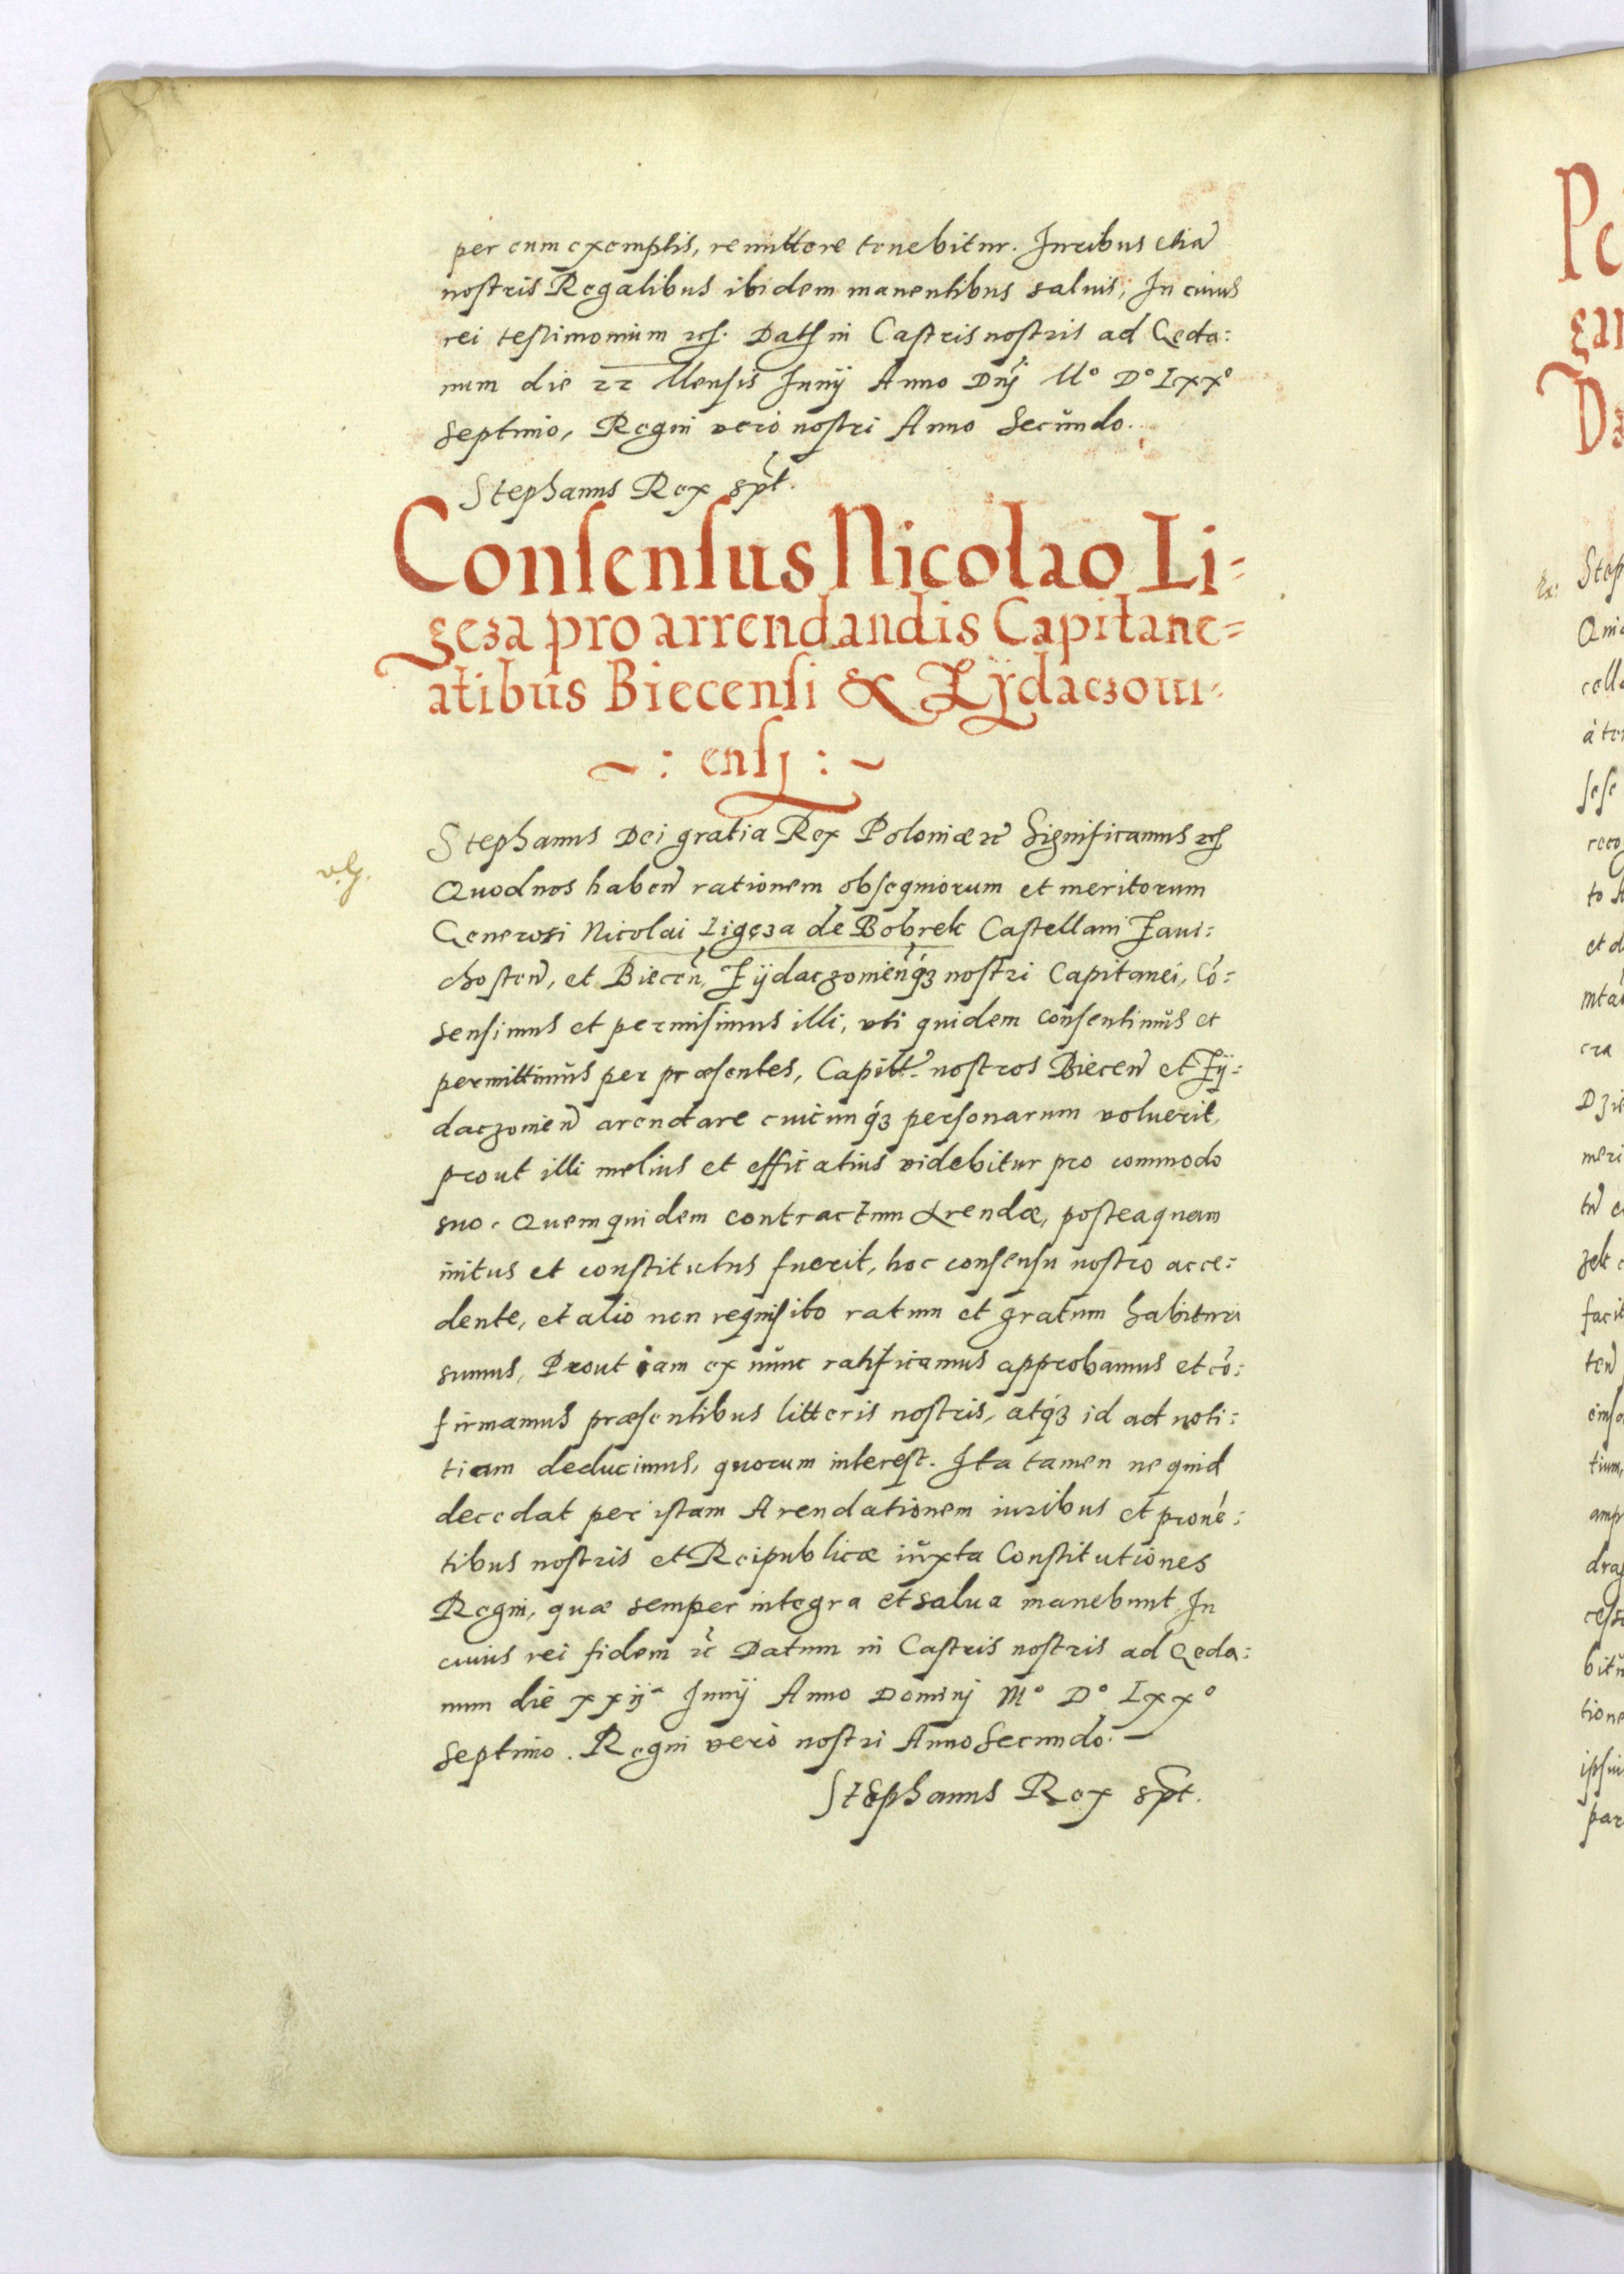 per eum exemptis, remittere tenebitur. Iuribus etiã
nostris Regalibus ibidem manentibus saluis, In cuius
rei testimonium etc. Dats in Castris nostris ad Geda:
num die 22 Mensis Junij Anno Dnj M° D° Lxx°
septimo, Regni vero nostri Anno Secundo.
Stephanus Rex spt.
Consensus Nicolao Li=
geza pro arrendandis Capitane=
atibus Biecensi & Zÿdaczoui=
~ : ensj : ~
v.G.
Stephanus Dei gratia Rex Poloniæ etc Significamus etc
Quod nos haben̄ rationem obsequiorum et meritorum
Generosi Nicolai Ligęza de Bobrek Castellani Zaui:
chosten̄, et Biecen̄, Zÿdaczouien̄q́3 nostri Capitanei, Cõ:
sensimus et permisimus illi, vti quidem consentimus et
permittimus per præsentes, Capitt. nostros Biecen̄ et Zÿ:
daczouien̄ arendare cuicunq́3 personarum voluerit,
prout illi melius et efficatius videbitur pro commodo
suo. Quem quidem contractum Arendæ, posteaquam
initus et constitutus fuerit, hoc consensu nostro acce:
dente, et alio non requisito ratum et gratum habituri
sumus, Prout iam ex nunc ratificamus approbamus et cõ:
firmamus præsentibus litteris nostris, atq́3 id ad noti:
tiam deducimus, quorum interest. Ita tamen ne quid
decedat per istam Arendationem iuribus et prouẽ:
tibus nostris et Reipublicæ iuxta Constitutiones
Regni, quæ semper integra et salua manebunt. In
cuius rei fidem etc Datum in Castris nostris ad Geda:
num die xxijª Junij Anno Dominj M° D° Lxx°
septimo. Regni vero nostri Anno Secundo.
Stephanus Rex spt.